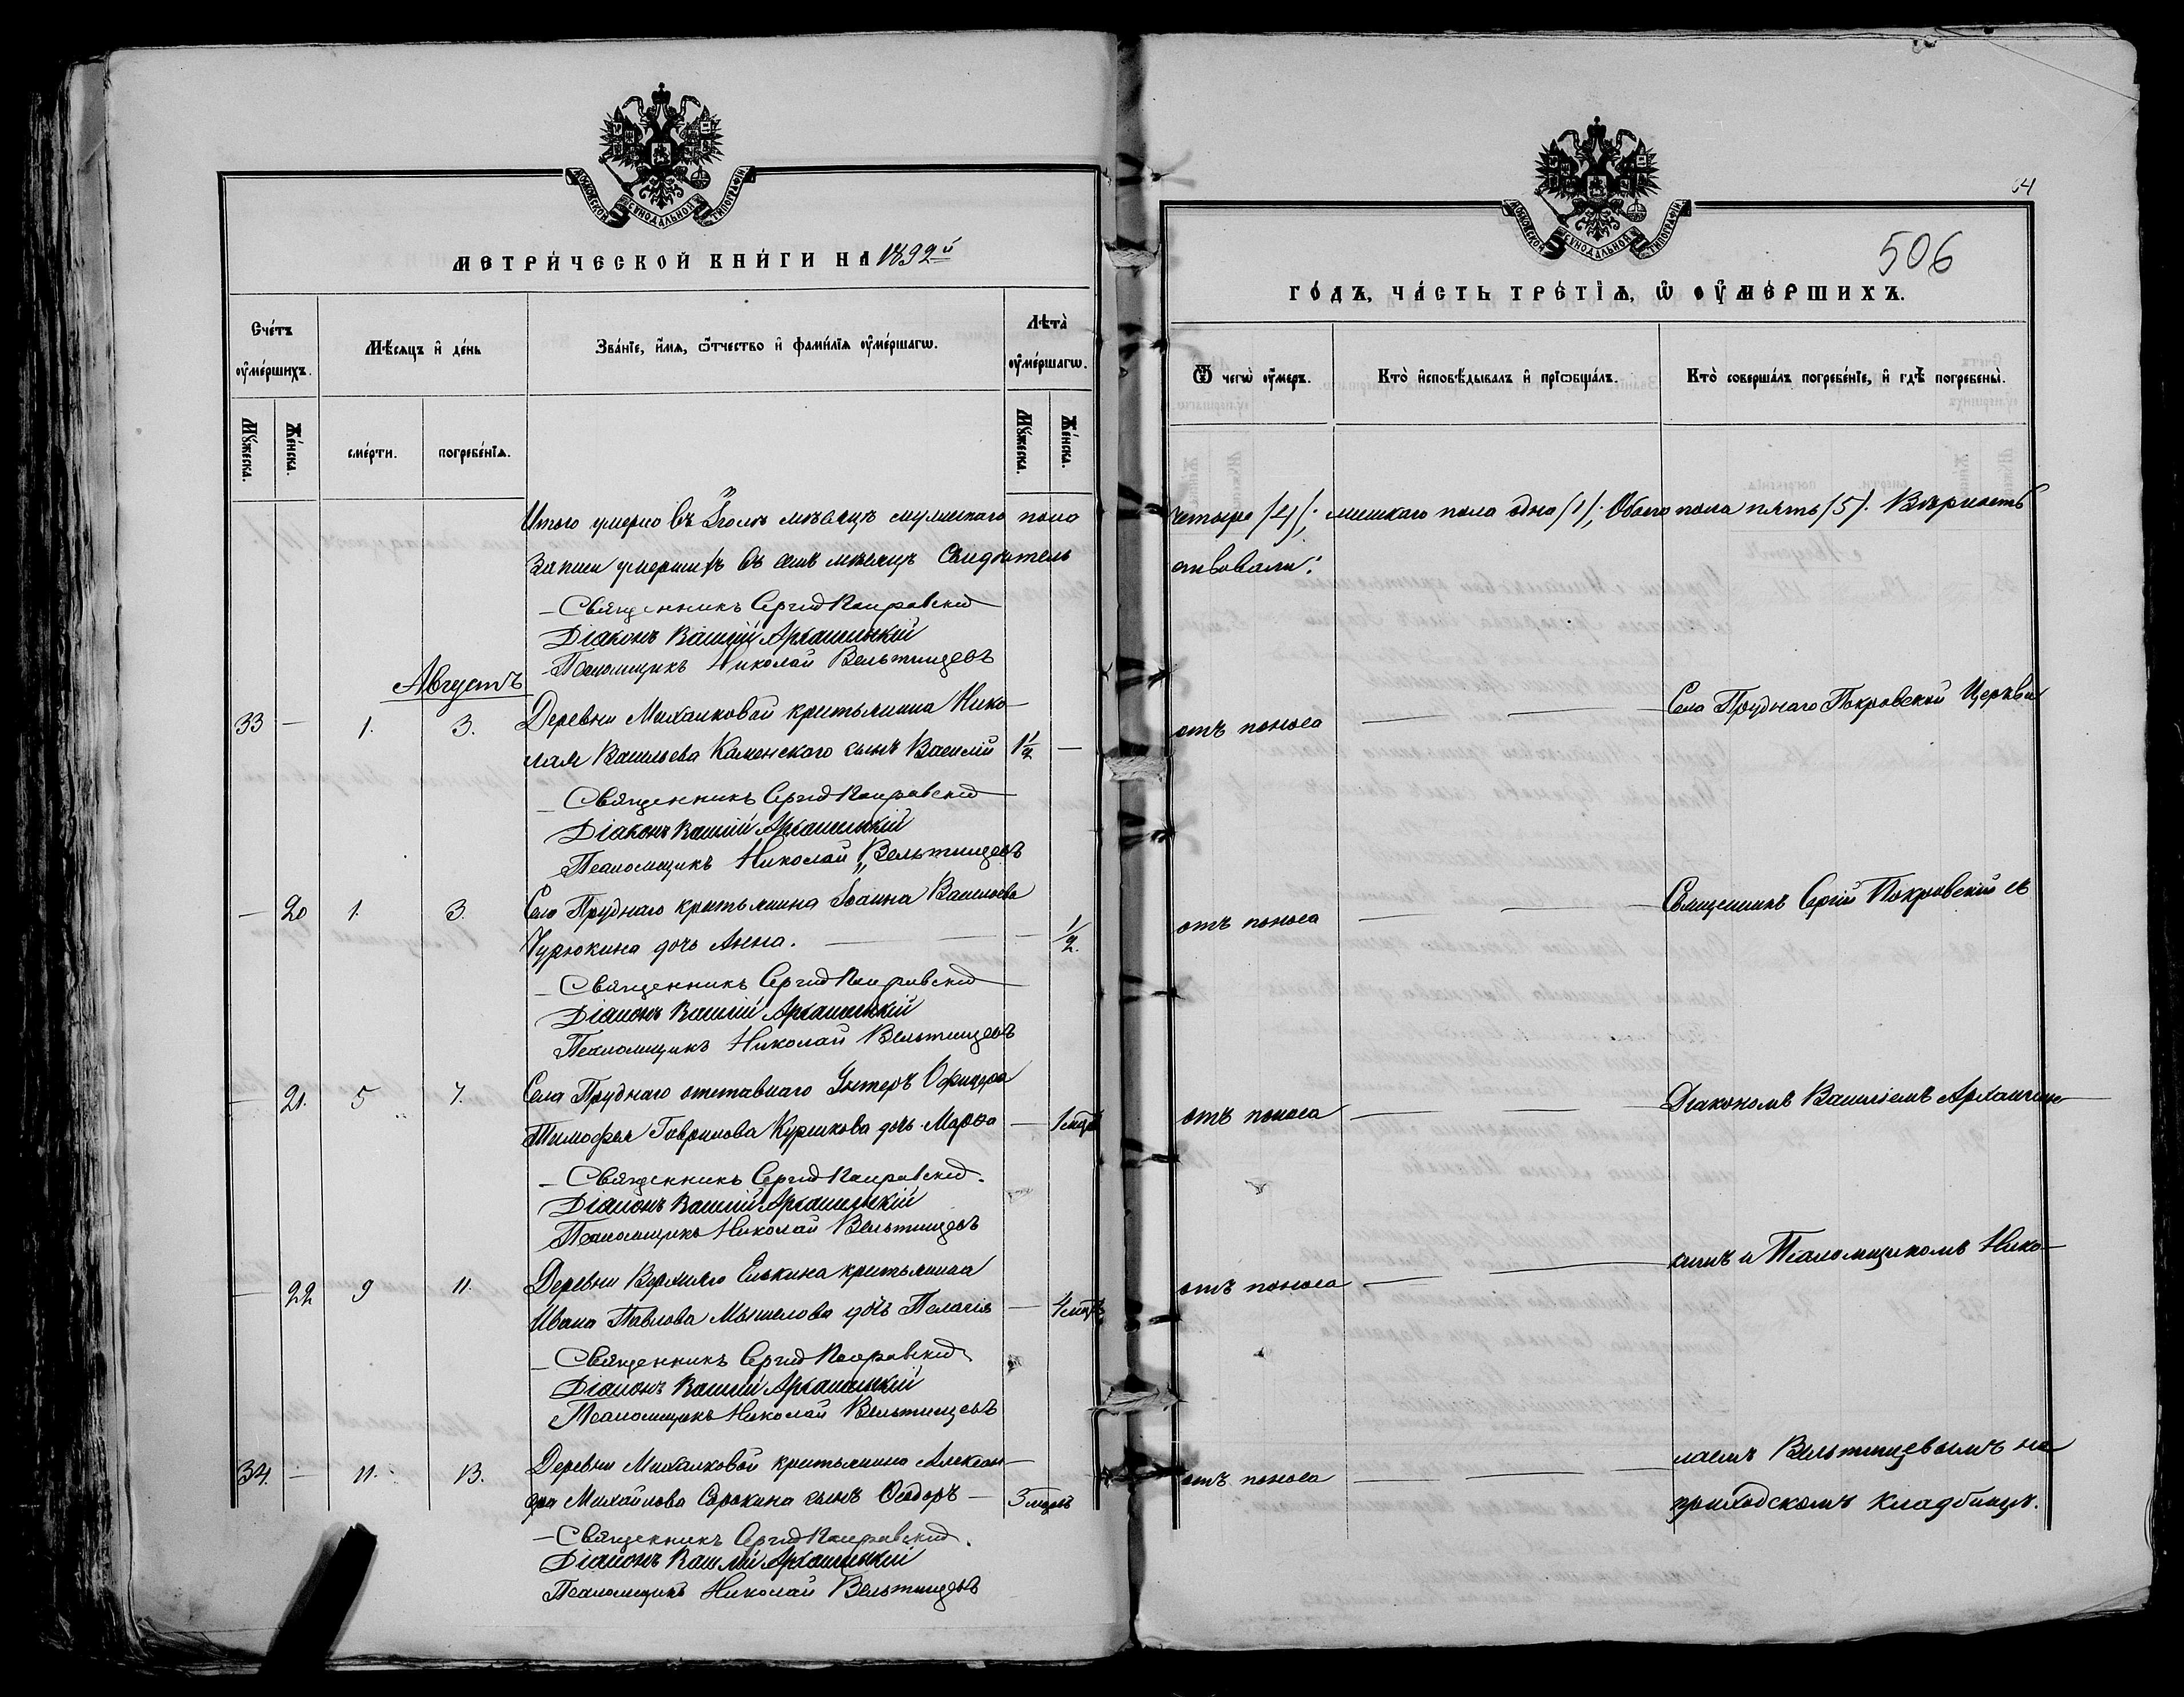 МОСКОВСКОЙ СѴНОДАЛЬНОЙ ТИПОГРАФІИ
МЕТРИ́ЧЕСКОЙ КНИ́ГИ НА 1892й
Сче́тъ ᲂу҆ме́ршихъ.
Мѣ́сяцъ и҆ де́нь
Зва́нїе, и҆́мя, ѻ҆́тчество и҆ фами́лїя ᲂу҆ме́ршагѡ.
Лѣта̀ ᲂу҆ме́ршагѡ.
Мꙋ́жеска.
Же́нска.
сме́рти.
погребе́нїя.
Мꙋ́жеска.
Же́нска.
Итого умерло въ Іюлѣ мѣсяцѣ мужескаго пола
записи умершихъ въ семъ мѣсяцѣ Свидѣтель
Священникъ Сергій Покровскій
Діаконъ Василій Архангельскій
Псаломщикъ Николай Вельтищевъ
Августъ
33 — 1. 3. Деревни Михалковой крестьянина Нико-
лая Васильева Каменскаго сынъ Василій 1½ —
Священникъ Сергій Покровскій
Діаконъ Василій Архангельскій
Псаломщикъ Николай Вельтищевъ
— 20 1. 3. Села Пруднаго крестьянина Іоанна Васильева
Чурюкина дочь Анна. — — ½.
Священникъ Сергій Покровскій
Діаконъ Василій Архангельскій
Псаломщикъ Николай Вельтищевъ
— 21. 5 7. Села Пруднаго отставнаго Унтеръ Офицера
Тимофея Гаврилова Куршкова дочь Марѳа — 1 мѣс
Священникъ Сергій Покровскій.
Діаконъ Василій Архангельскій
Псаломщикъ Николай Вельтищевъ
— 22 9 11. Деревни Верхняго Елькина крестьянина
Ивана Павлова Мышелова дочь Пелагія — 4 мѣс
Священникъ Сергій Покровскій
Діаконъ Василій Архангельскій
Псаломщикъ Николай Вельтищевъ
34. — 11. 13. Деревни Михалковой крестьянина Алексан-
дра Михайлова Сорокина сынъ Ѳеодоръ — 3 мѣсяц
Священникъ Сергій Покровскій.
Діаконъ Василій Архангельскій
Псаломщикъ Николай Вельтищевъ
МОСКОВСКОЙ СѴНОДАЛЬНОЙ ТИПОГРАФІИ
506
ГО́ДЪ, ЧА́СТЬ ТРЕ́ТІѦ, Ѡ҆ ОУ҆МЕ́РШИХЪ.
Ѿ чегѡ̀ ᲂу҆́меръ.
Кто̀ и҆сповѣ́дывалъ и҆ прїѡбща́лъ.
Кто̀ соверша́лъ погребе́нїе, и҆ гдѣ̀ погребены̀.
четыре (4); женскаго пола одно (1); Обоего пола пять (5). Вѣрность
ствовали:
отъ поноса — — Села Пруднаго Покровской Церкви
отъ поноса — — Священникъ Сергій Покровскій съ
отъ поноса — — Діакономъ Василіемъ Архангель-
скимъ и Псаломщикомъ Нико-
отъ поноса — —
лаемъ Вельтищевымъ на
отъ поноса — —
приходскомъ кладбищѣ.